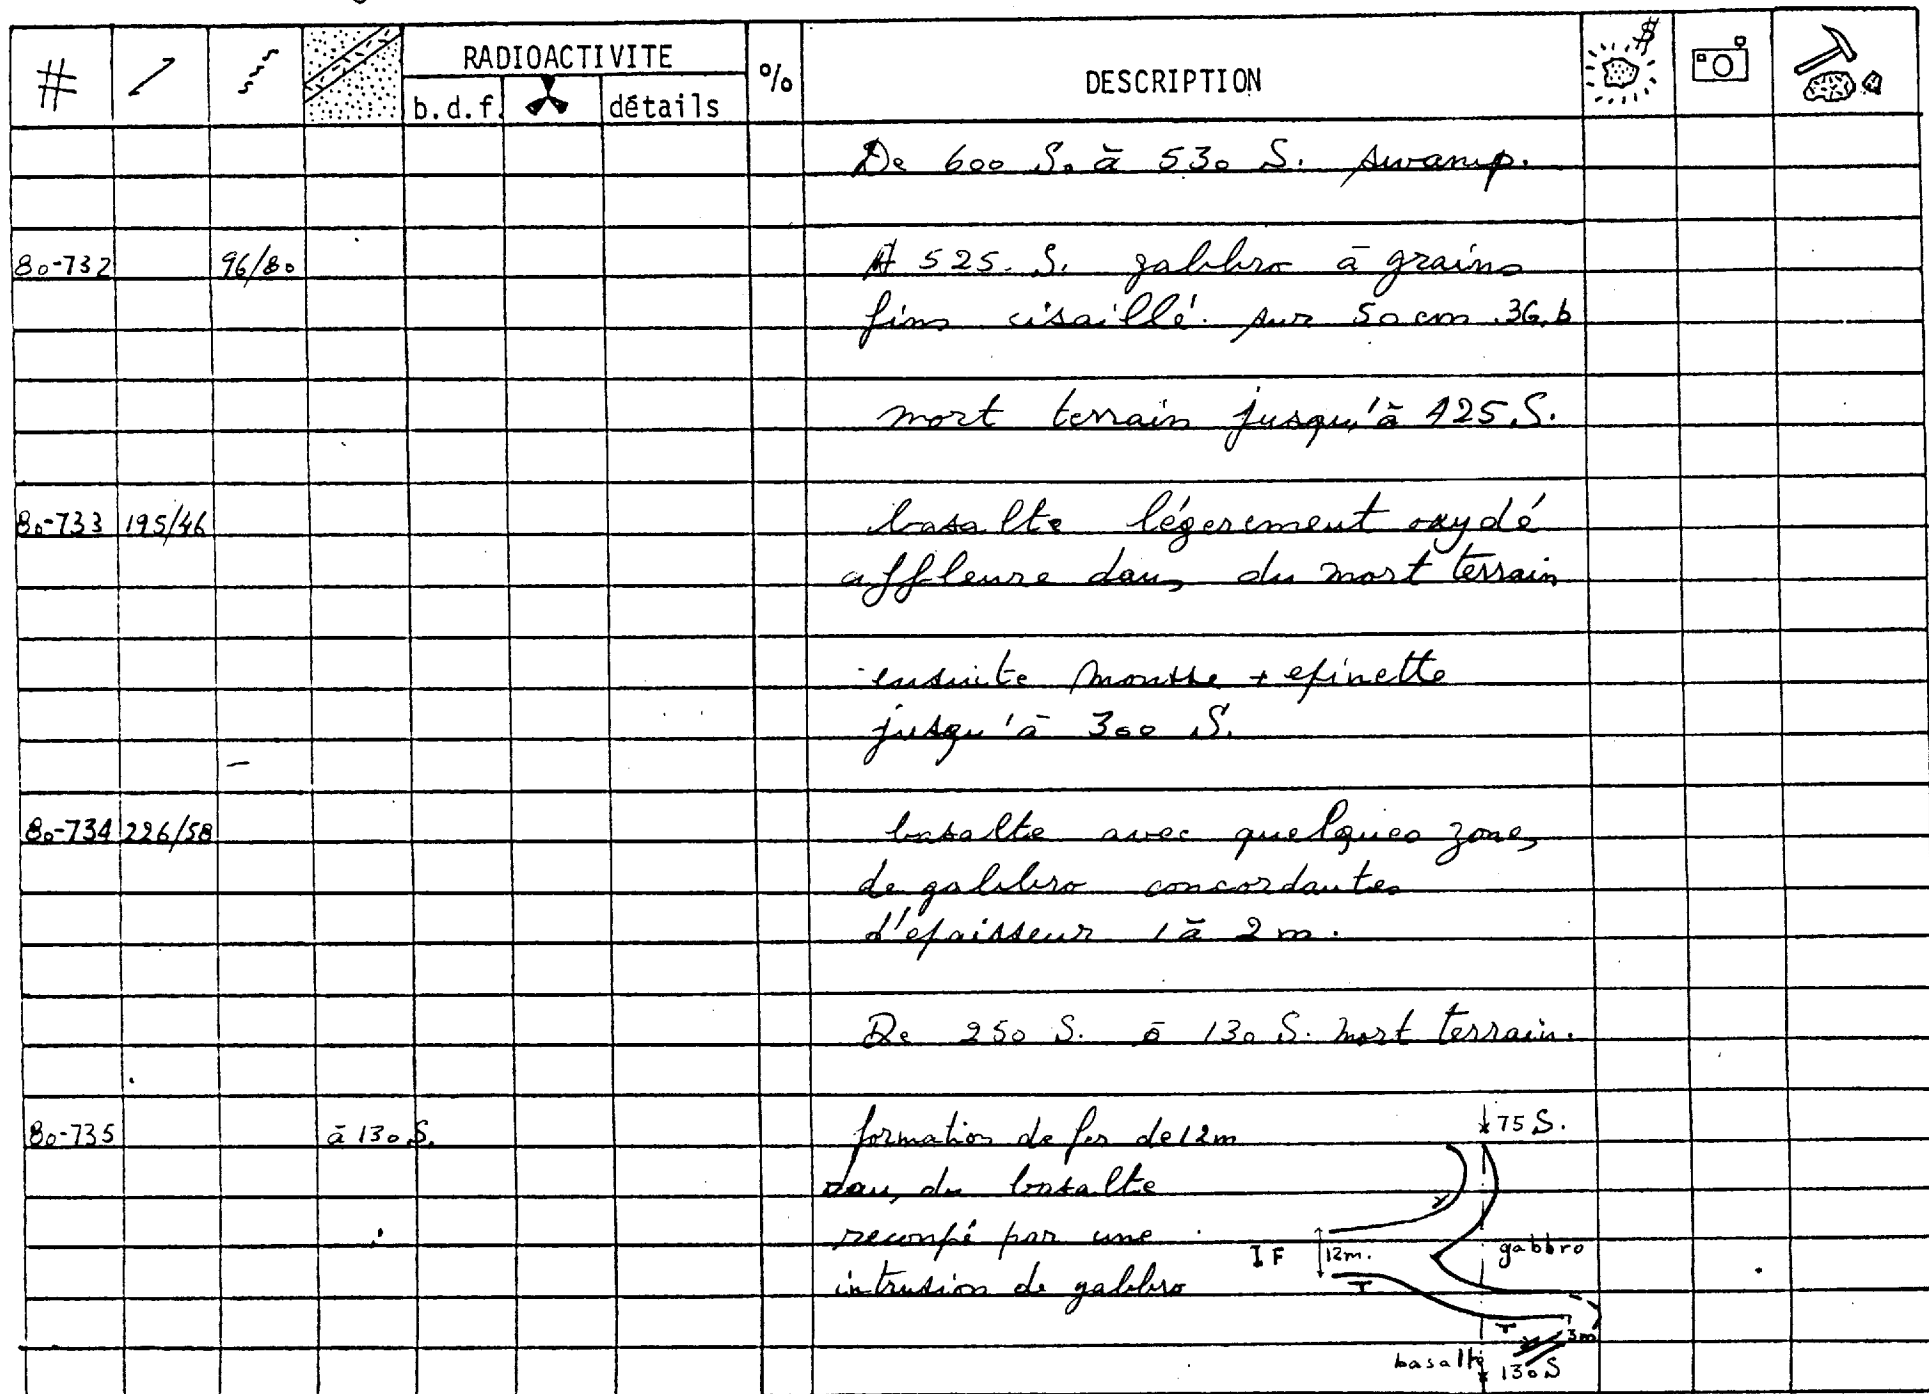 # RADIOACTIVITE % DESCRIPTION $
b.d.f. détails
De 600 S. à 530 S. swamp.
80-732 96/80 A 525. S. gabbro à grains
fins cisaillé sur 50 cm 3G.b
mort terrain jusqu'à 425 S.
80-733 195/46 basalte légerement oxydé
affleure dans du mort terrain
ensuite mousse + epinette
jusqu'à 300 S.
80-734 226/58 basalte avec quelques zones
de gabbro concordantes
d'epaisseur 1 à 2 m.
De 250 S. à 130 S. mort terrain.
80-735 à 130 S. formation de fer de 12m
75 S.
dans du basalte
recoupé par une
IF 12m. gabbro
intrusion de gabbro
3m
basalte 130 S